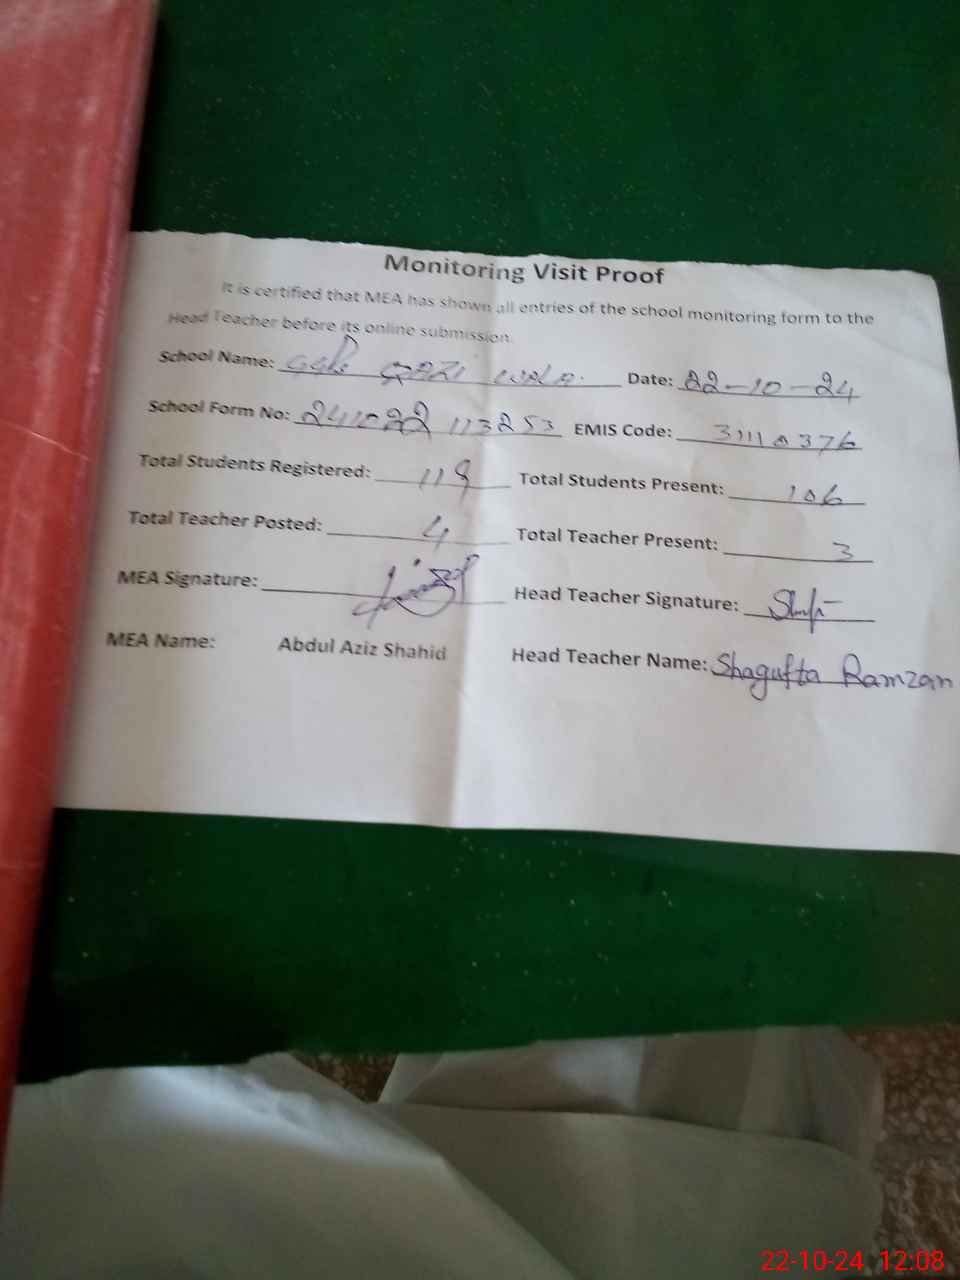 Monitoring Visit Proof
It is certified that MEA has shown all entries of the school monitoring form to the
Head Teacher before its online submission.
School Name: GGPS QAZI WALA. Date: 22-10-24
School Form No: 241022 113253 EMIS Code: 31110376
Total Students Registered: 118 Total Students Present: 106
Total Teacher Posted: 4 Total Teacher Present: 3
MEA Signature: Head Teacher Signature:
MEA Name: Abdul Aziz Shahid Head Teacher Name: Shagufta Ramzan
22-10-24 12:08